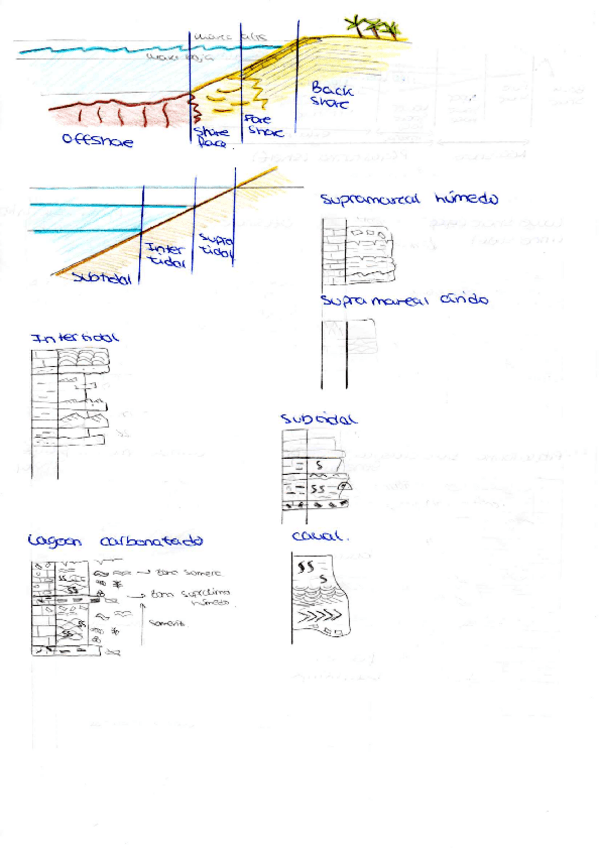 marea alta
marea baja
Back
shore
Offshore
Shore
face.
Fore
shore
Supra
tidal
Inter
tidal
Subtidal
Supramareal húmedo
Supramareal árido
Intertidal
Subtidal
S
SS
Lagoon carbonatado
canal.
SS
S
SS
→ zona somera
húmedo.
SS